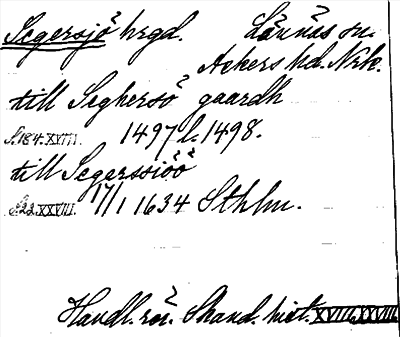 Segersjö hrgd. Lännäs sn.
Askers hd. Nrk.
till Seghersö gaardh
S. 184. XVIII. 1497 l. 1498.
till Segerssiöö
S. 22. XXVIII. 17/1 1634 Sthlm.
Handl. rör. Skand. hist. XVIII, XXVIII